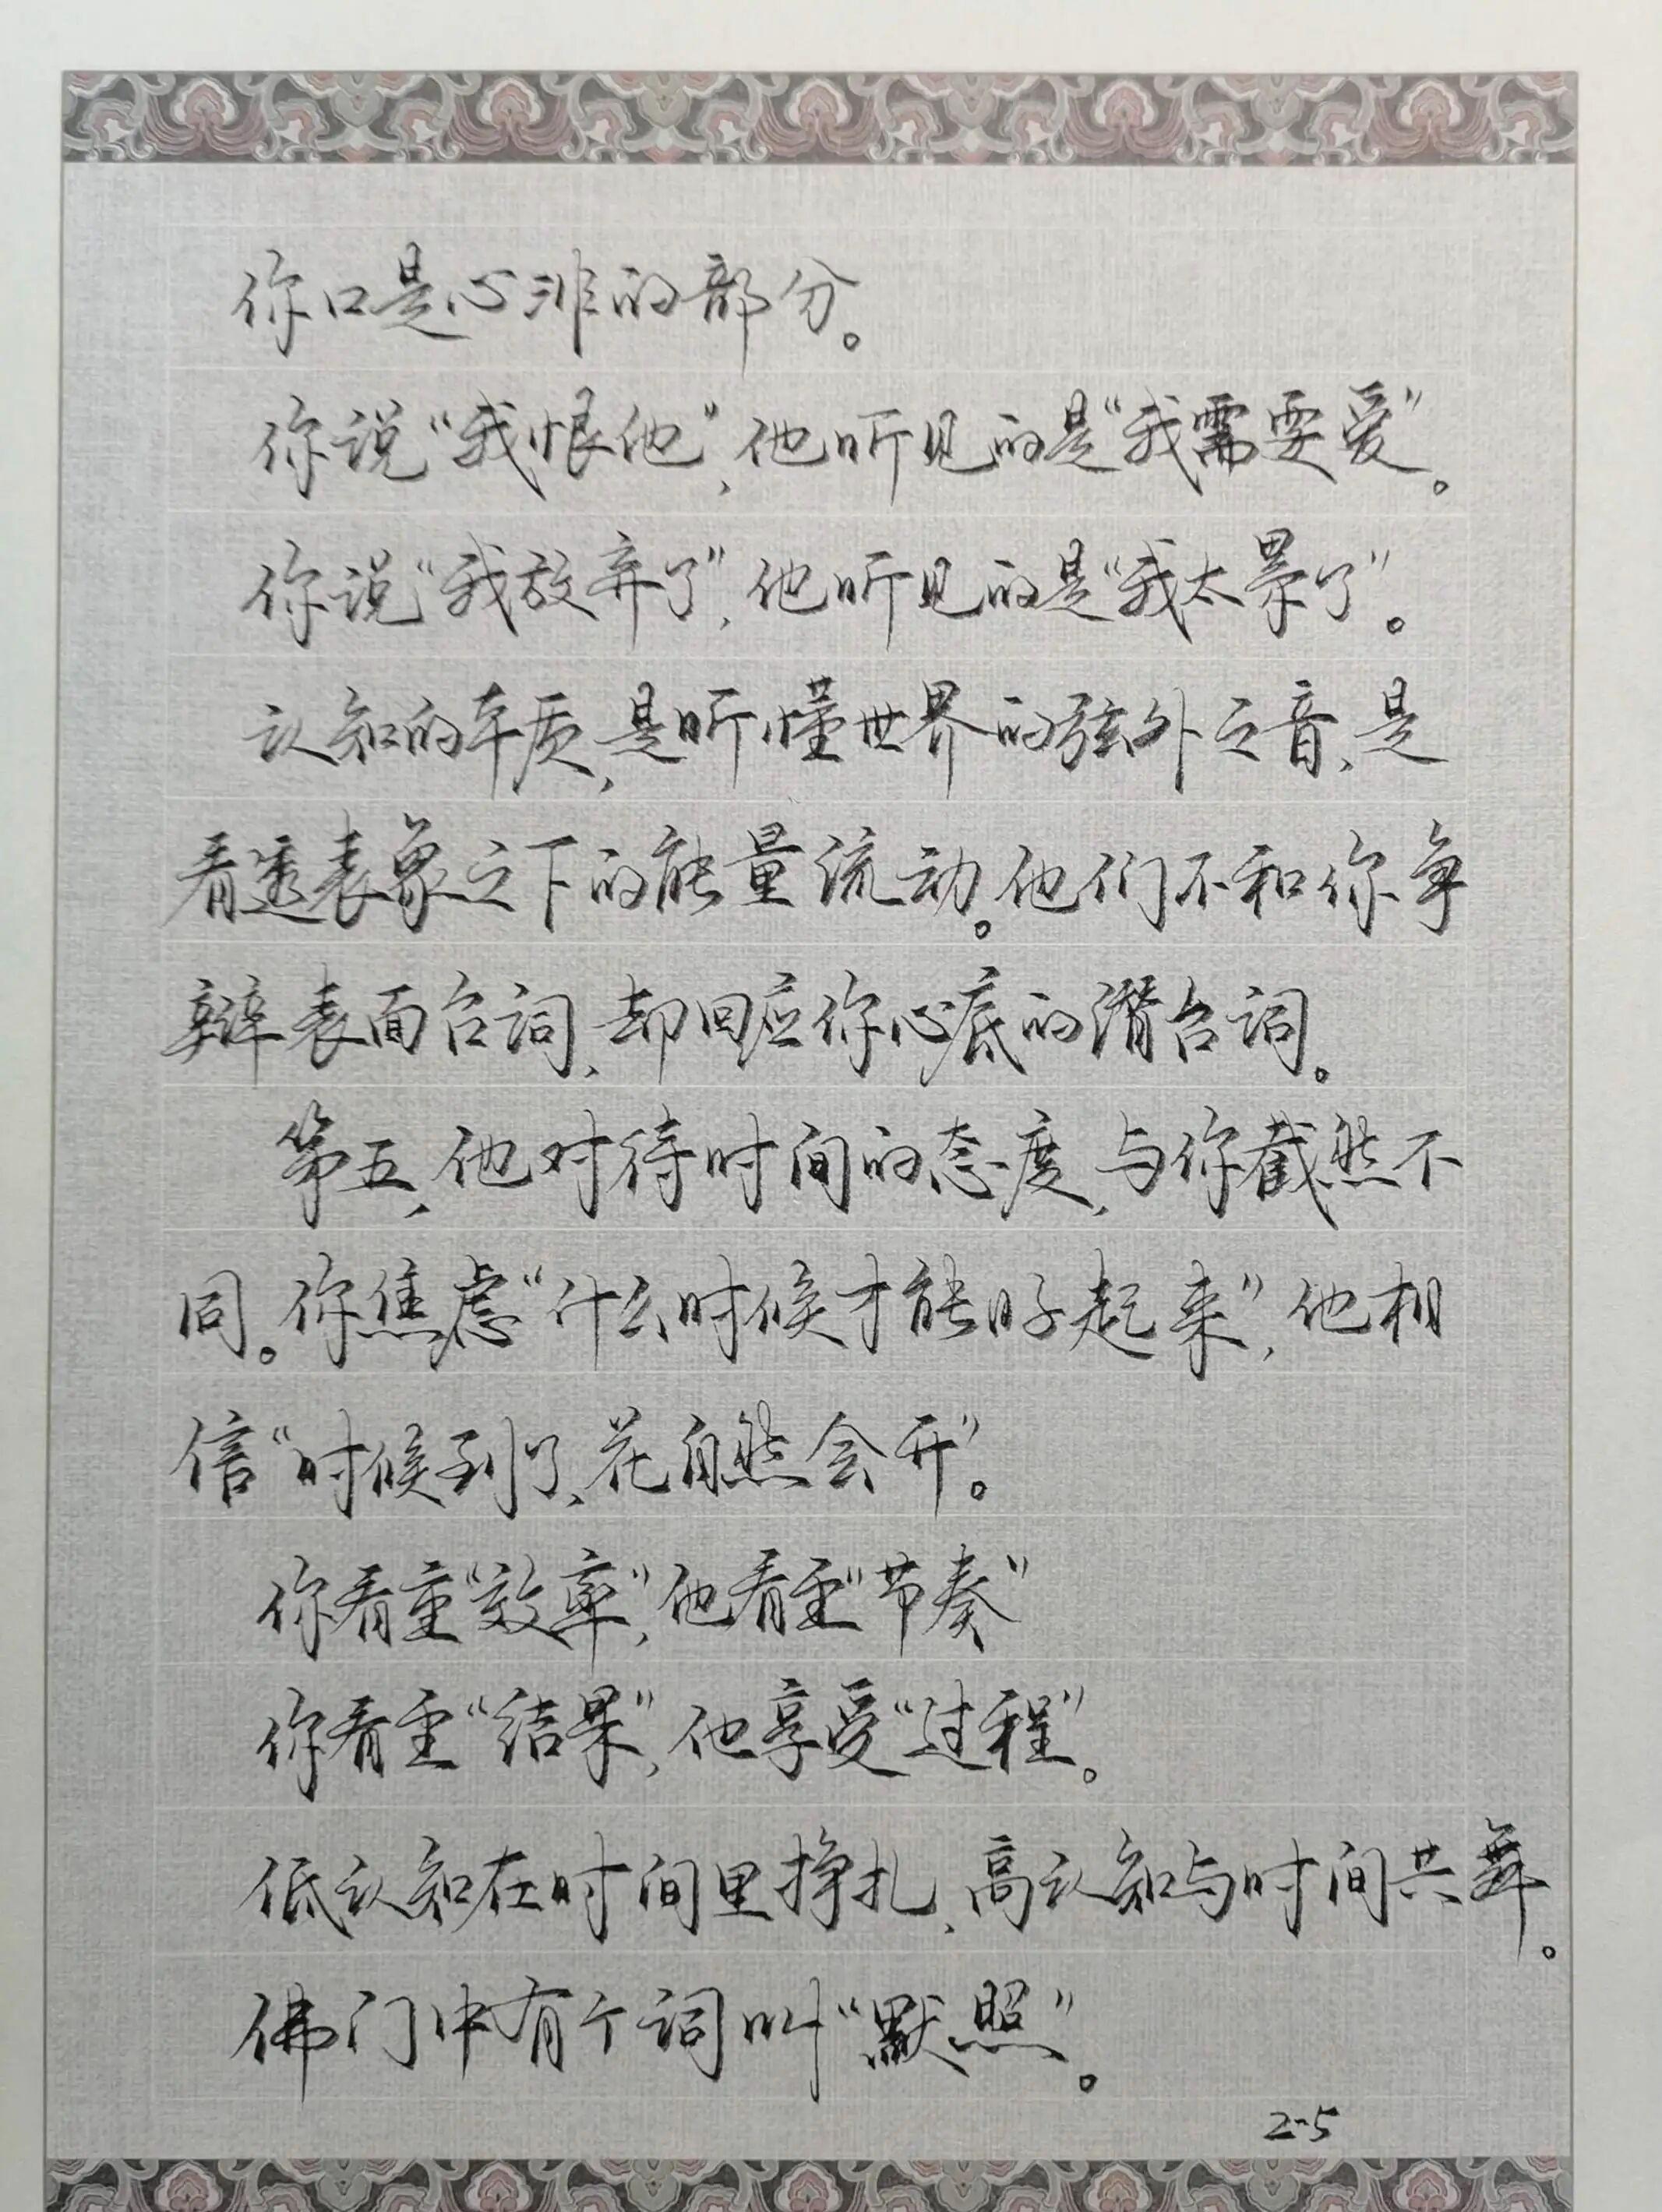 你口是心非的部分。
你说“我恨他”，他听见的是“我需要爱”。
你说“我放弃了”，他听见的是“我太累了”。
认知的本质，是听懂世界的弦外之音，是
看透表象之下的能量流动。他们不和你争
辩表面台词，却回应你心底的潜台词。
第五，他对待时间的态度，与你截然不
同。你焦虑“什么时候才能好起来”，他相
信“时候到了，花自然会开”。
你看重“效率”，他看重“节奏”
你看重“结果”，他享受“过程”。
低认知在时间里挣扎，高认知与时间共舞。
佛门中有个词叫“默照”。
2-5